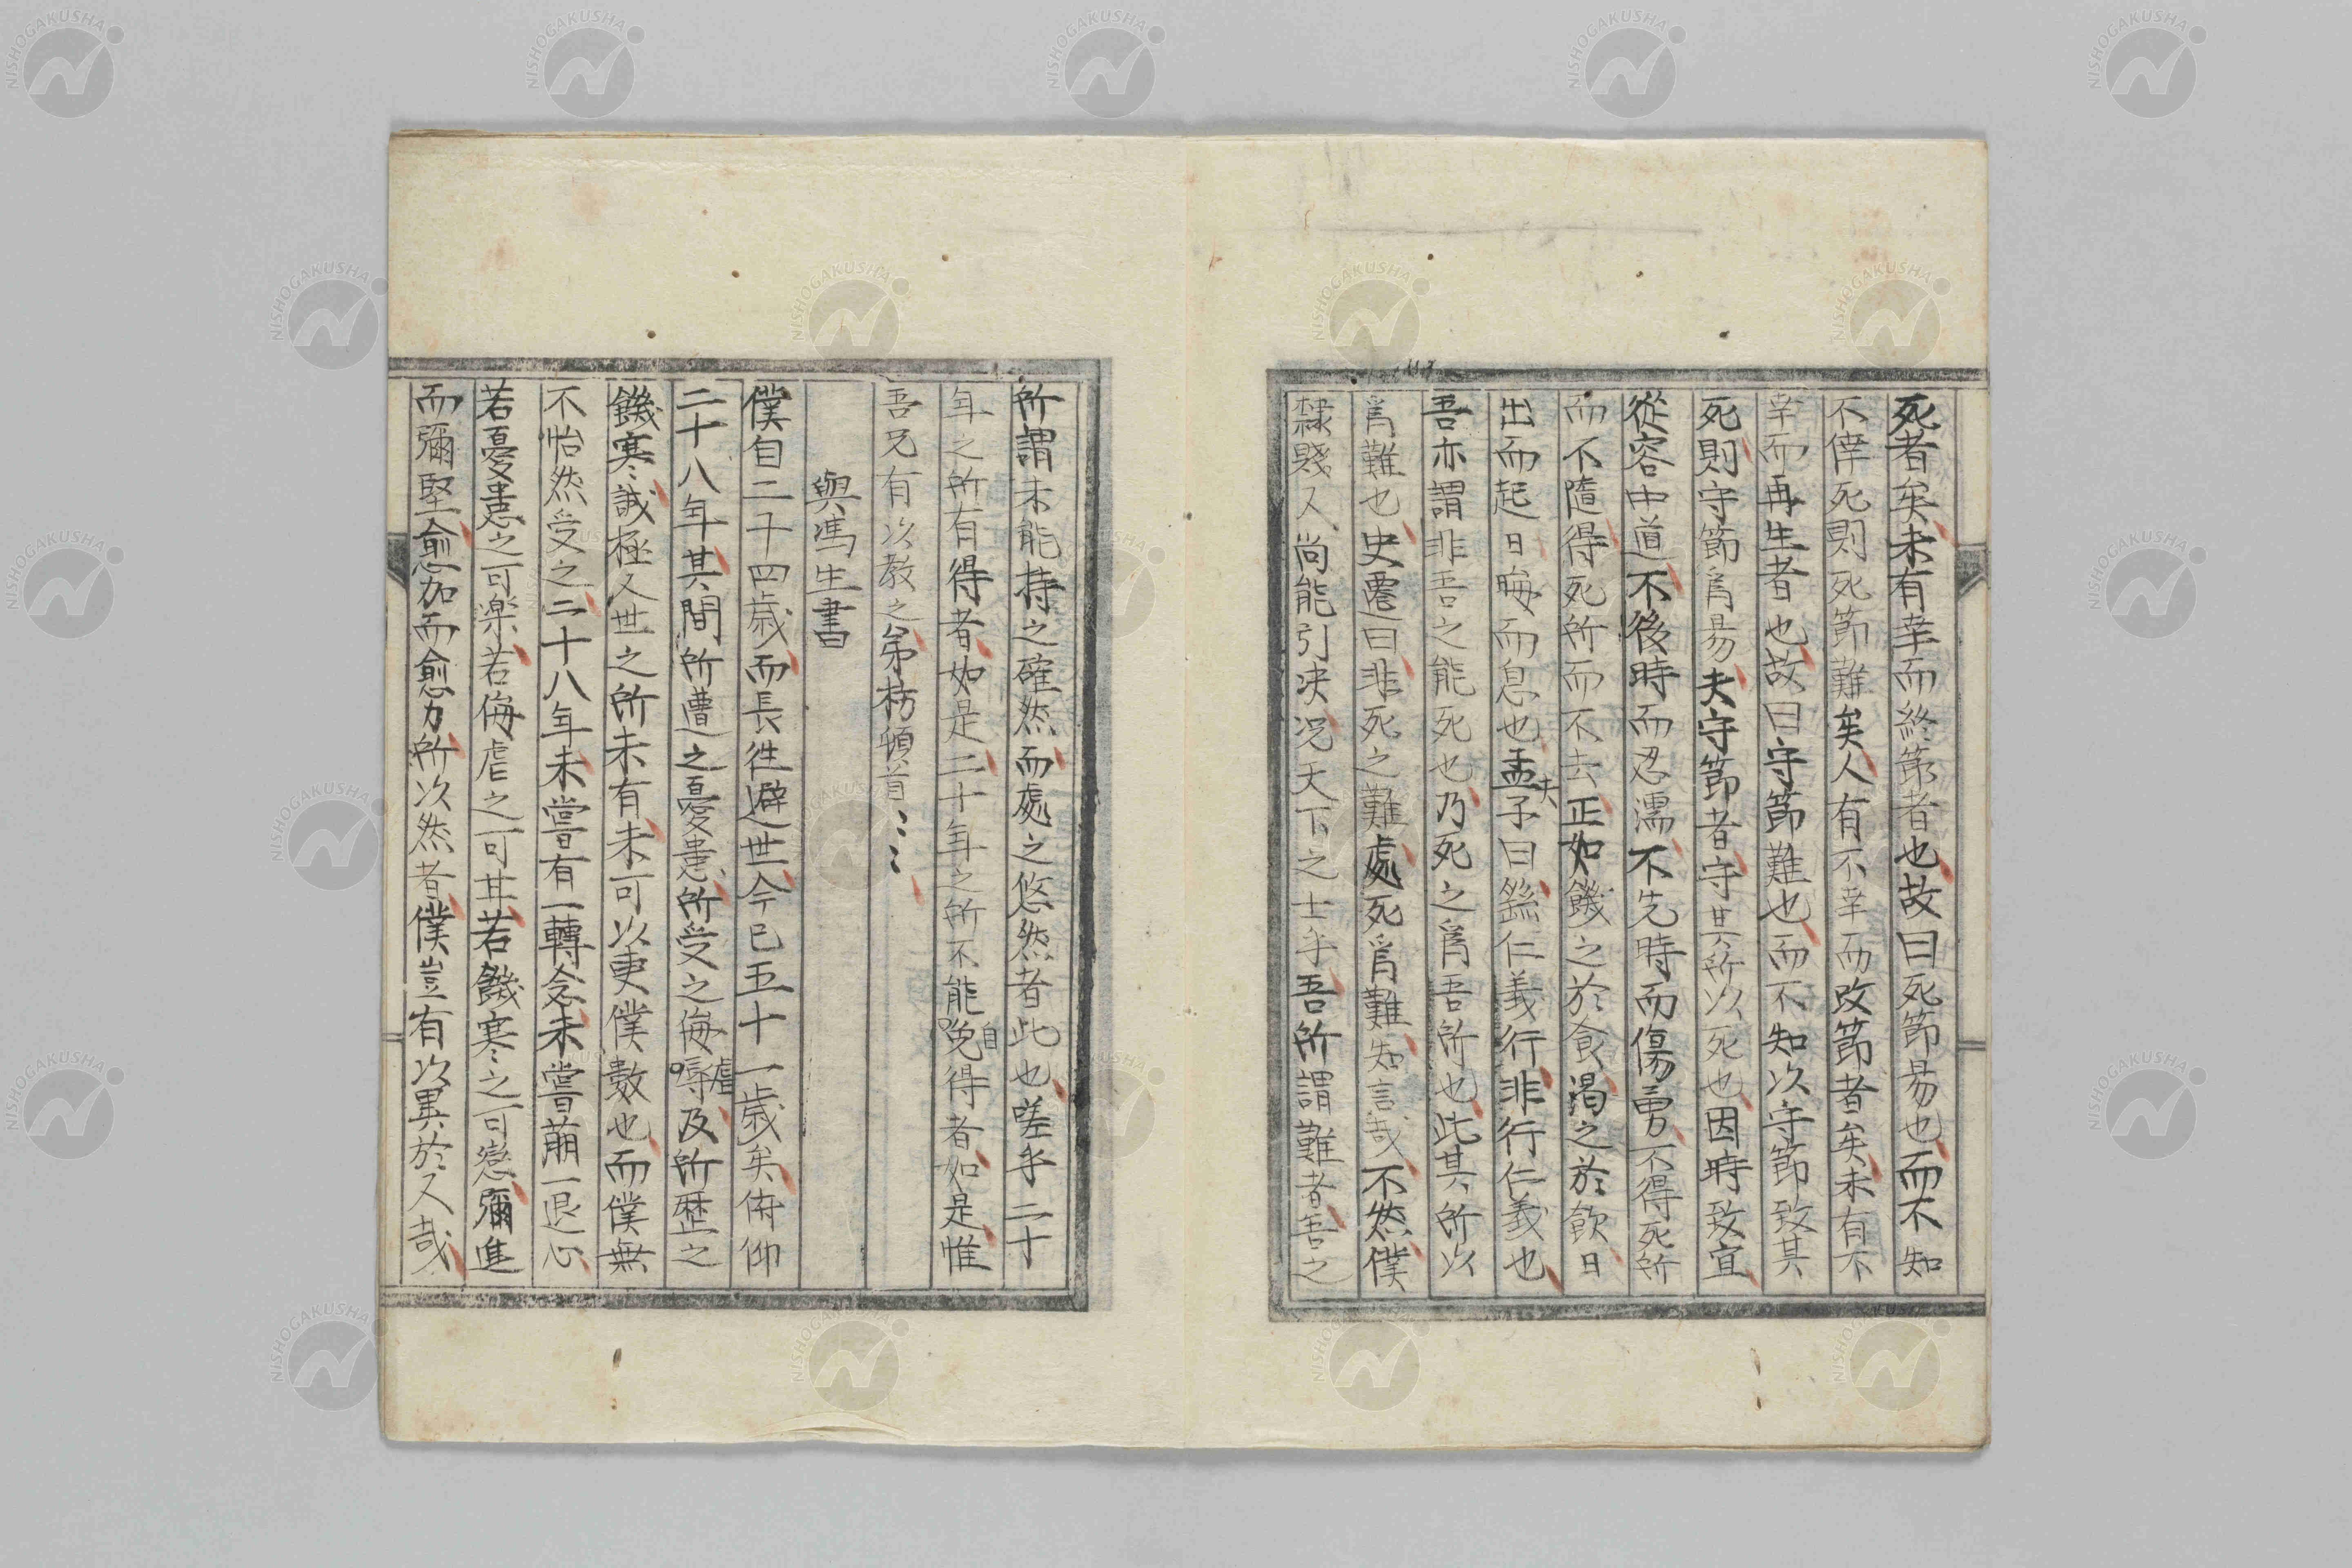 死者矣未有幸而終節者也故曰死節易也而不知
不倖死則死節難矣人有不幸而改節者矣未有不
幸而再生者也故曰守節難也而不知以守節致其
死則守節爲易夫守節者守其所以死也因時致宜
從容中道不後時而忍濡不先時而傷勇不得死所
而不隨得死所而不去正如饑之於食渴之於飲日
出而起日晦而息也孟夫子曰繇仁義行非行仁義也
吾亦謂非吾之能死也乃死之爲吾所也此其所以
爲難也史遷曰非死之難處死爲難知言哉不然僕
隸賤人尚能引决况天下之士乎吾所謂難者吾之
所謂未能持之確然而處之悠然者此也嗟乎二十
年之所有得者如是二十年之所不能自免得者如是惟
吾兄有以教之弟枋頓首
與馮生書
僕自二十四歳而長徃避世今已五十一歳矣俯仰
二十八年其間所遭之憂患所受之侮辱虐及所歴之
饑寒誠極人世之所未有未可以更僕數也而僕無
不怡然受之二十八年未嘗有一轉念未嘗萠一退心
若憂患之可楽若侮虐之可甘若饑寒之可戀彌進
而彌堅愈加而愈力所以然者僕豈有以異於人哉
NISHOGAKUSHA